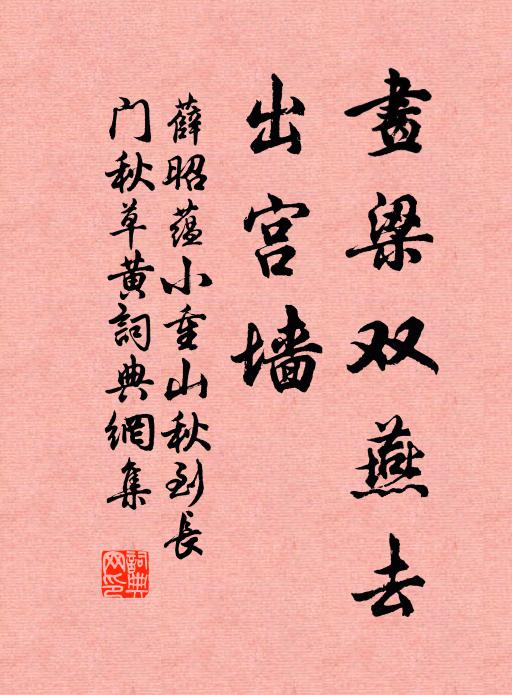 畫梁双燕去
出宫墙
薛昭蕴小重山秋到長
门秋草黄詞典網集
詞典网印